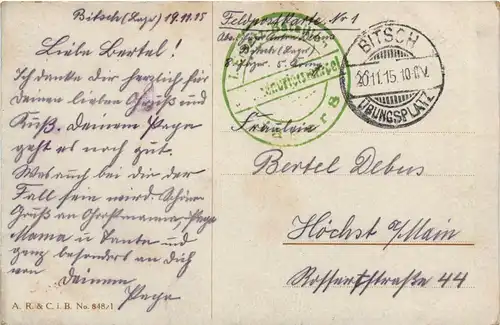 Bitsch (Lager) 19.11.15
Liebe Bertel!
Ich danke dir herzlich für
Deinen lieben Gruß und
Kuß. Deinem Papa
geht es noch gut.
Was auch bei dir der
Fall sein wird. Schöne
Gruß an Großmama,
Mama u Tante und
ganz besonders an dich
von Deinem
Papa
A. R. & C. i. B. No. 848/1
Feldpostkarte Nr 1
Bitsch (Lager)
BITSCH
20.11.15 10-11V.
ÜBUNGSPLATZ
Fräulein
Bertel Debus
Höchst a/Main
Rossertstraße 44